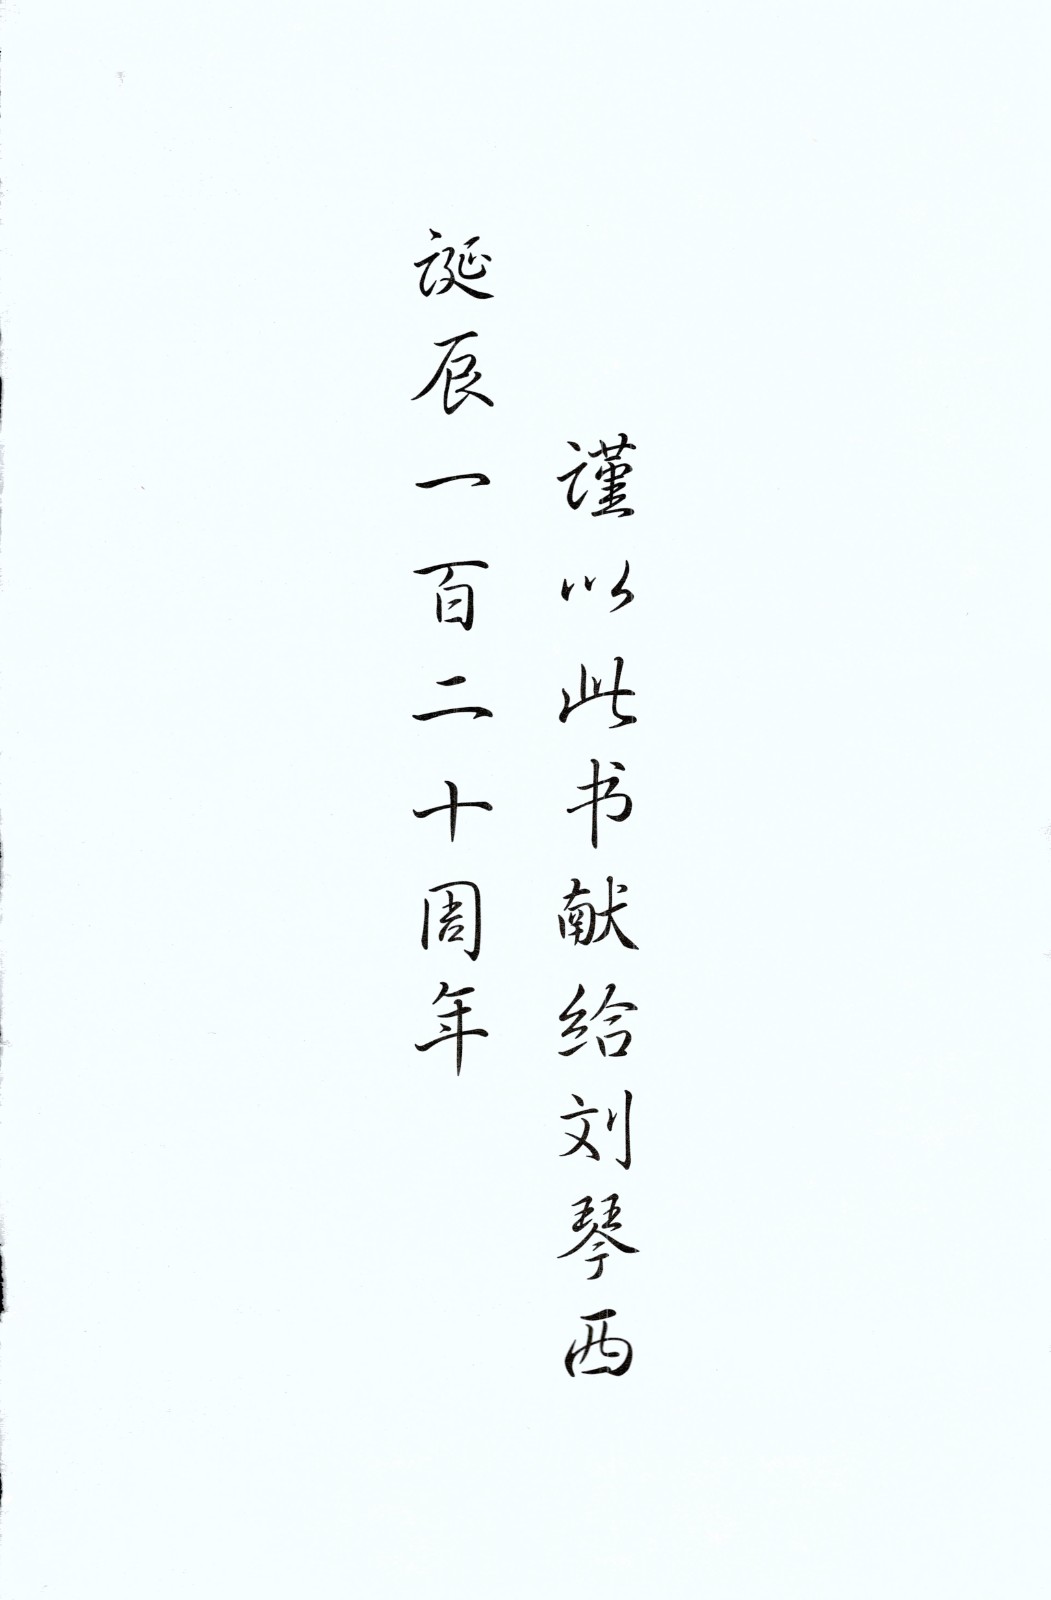 謹以此书献给刘琴西
誕辰一百二十周年